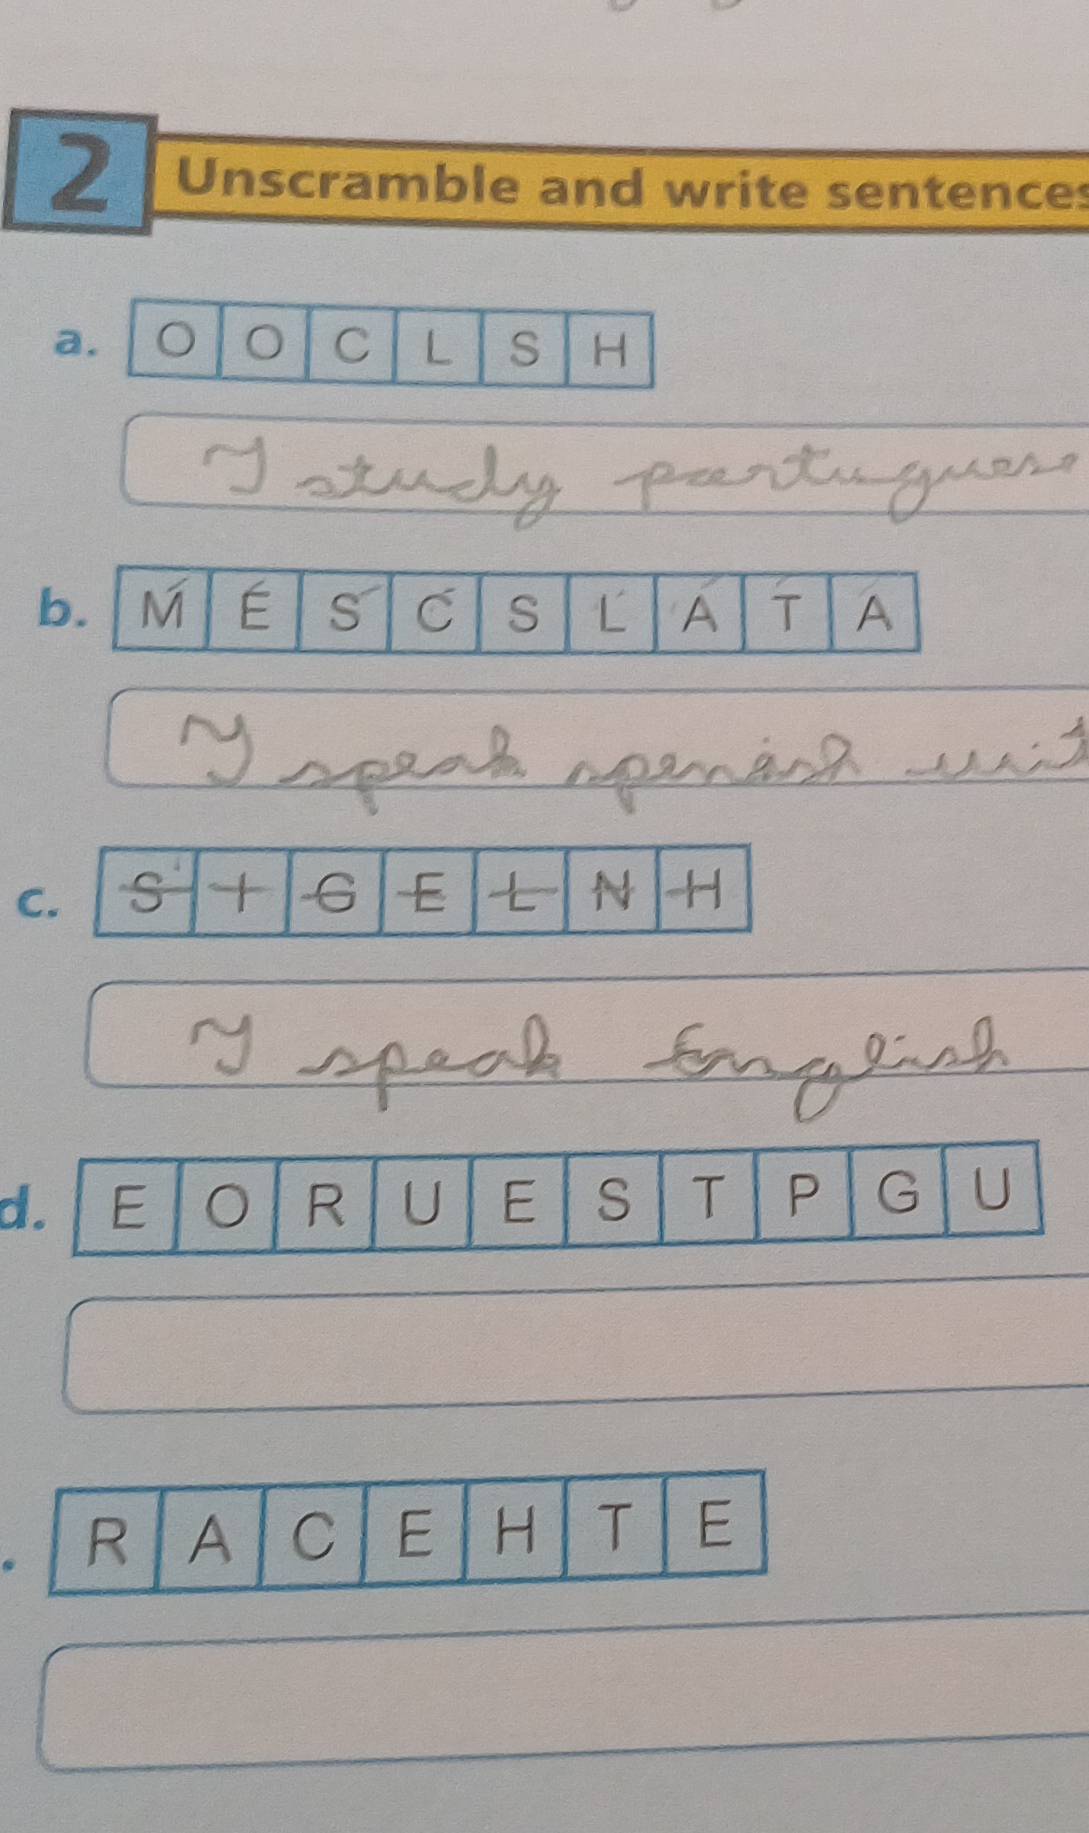 2 Unscramble and write sentences
a. O O C L S H
I study portuguese
b. M E S C S L A T A
I speak spenish wit
c. S I G E L N H
I speak English
d. E O R U E S T P G U
R A C E H T E